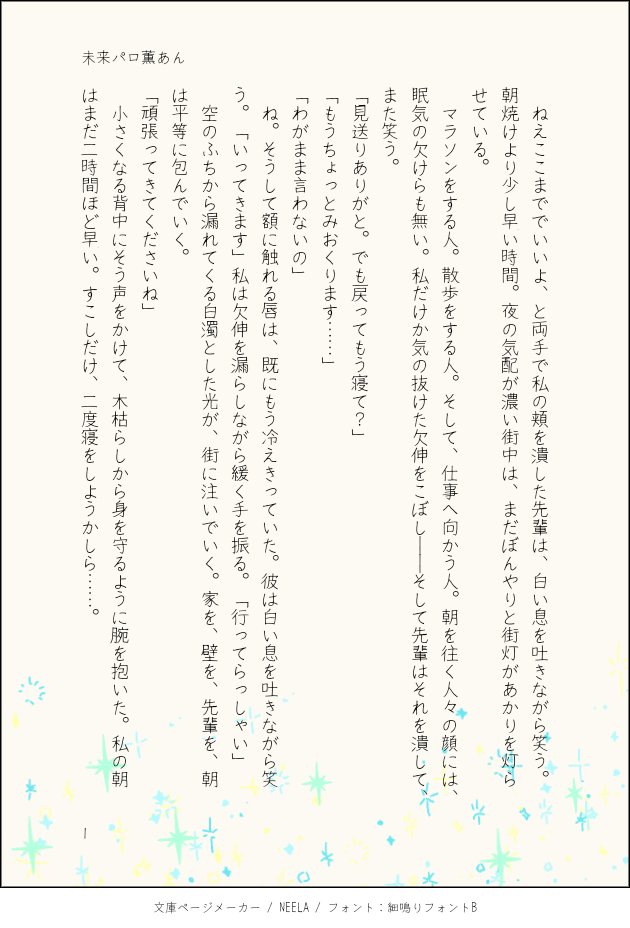 未来パロ薫あん
　ねえここまででいいよ、と両手で私の頬を潰した先輩は、白い息を吐きながら笑う。
朝焼けより少し早い時間。夜の気配が濃い街中は、まだぼんやりと街灯があかりを灯ら
せている。
　マラソンをする人。散歩をする人。そして、仕事へ向かう人。朝を往く人々の顔には、
眠気の欠けらも無い。私だけか気の抜けた欠伸をこぼし――そして先輩はそれを潰して、
また笑う。
「見送りありがと。でも戻ってもう寝て？」
「もうちょっとみおくります……」
「わがまま言わないの」
　ね。そうして額に触れる唇は、既にもう冷えきっていた。彼は白い息を吐きながら笑
う。「いってきます」私は欠伸を漏らしながら緩く手を振る。「行ってらっしゃい」
　空のふちから漏れてくる白濁とした光が、街に注いでいく。家を、壁を、先輩を、朝
は平等に包んでいく。
「頑張ってきてくださいね」
　小さくなる背中にそう声をかけて、木枯らしから身を守るように腕を抱いた。私の朝
はまだ二時間ほど早い。すこしだけ、二度寝をしようかしら……。
1
文庫ページメーカー / NEELA / フォント：細鳴りフォントB